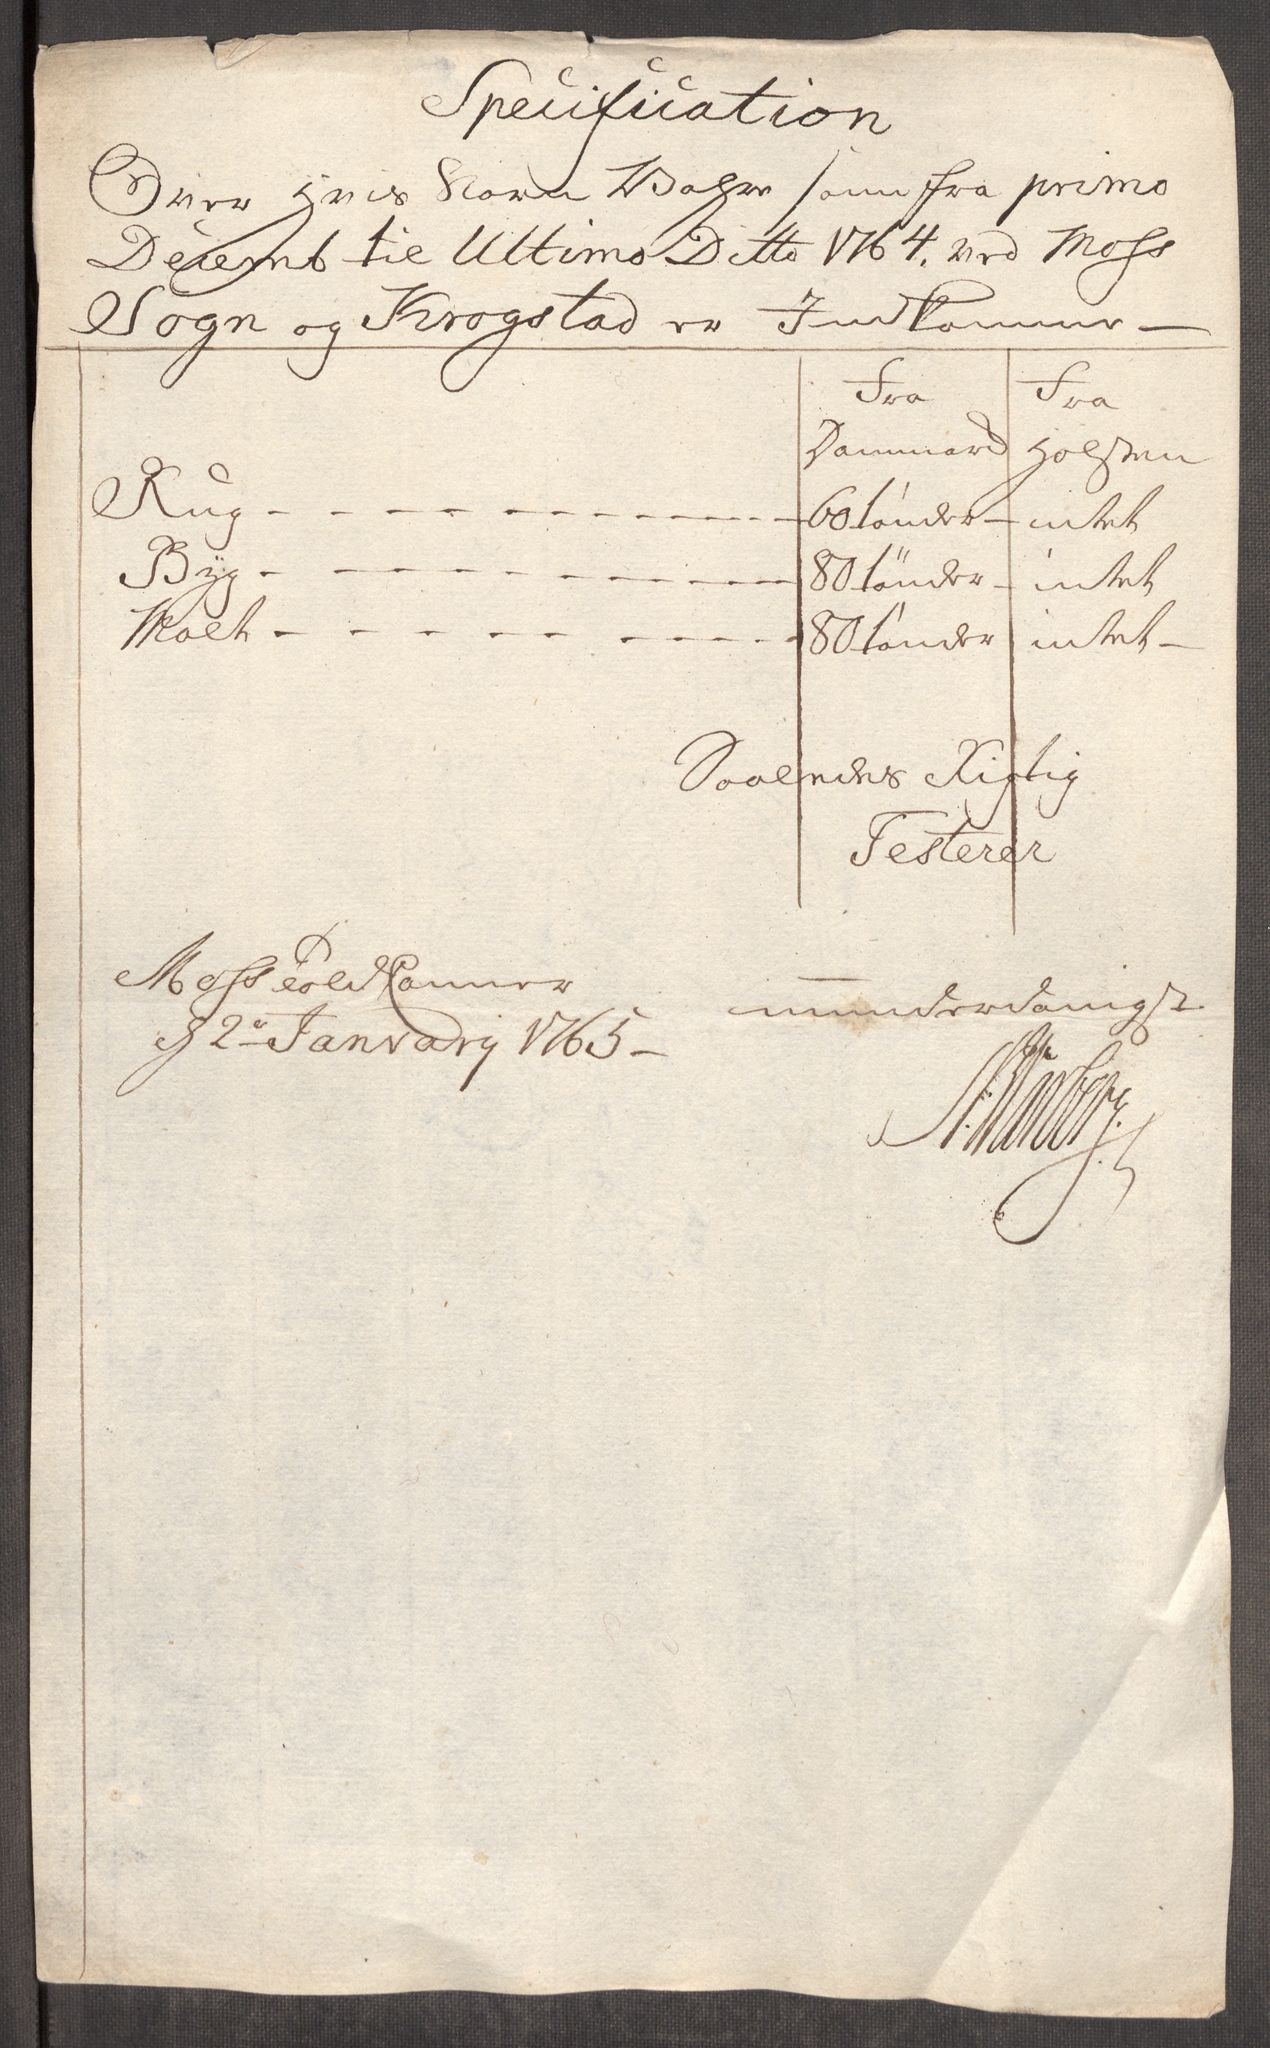 Specification
Over hvis Korn Vahre som fra primo
Decemb til Ultimo Ditto 1764. ved Moss
Sogn og Krogstad er Indkomme —
Fra Fra
Danmarck Holsten
Rug - - - - - - - - - - 60 tønder - intet
Byg - - - - - - - - - - 80 tønder - intet
Malt - - - - - - - - - 80 tønder intet -
Saaledes Rigtig
Testerer
Moss Told Kammer underdanigst
d 2en January 1765 -